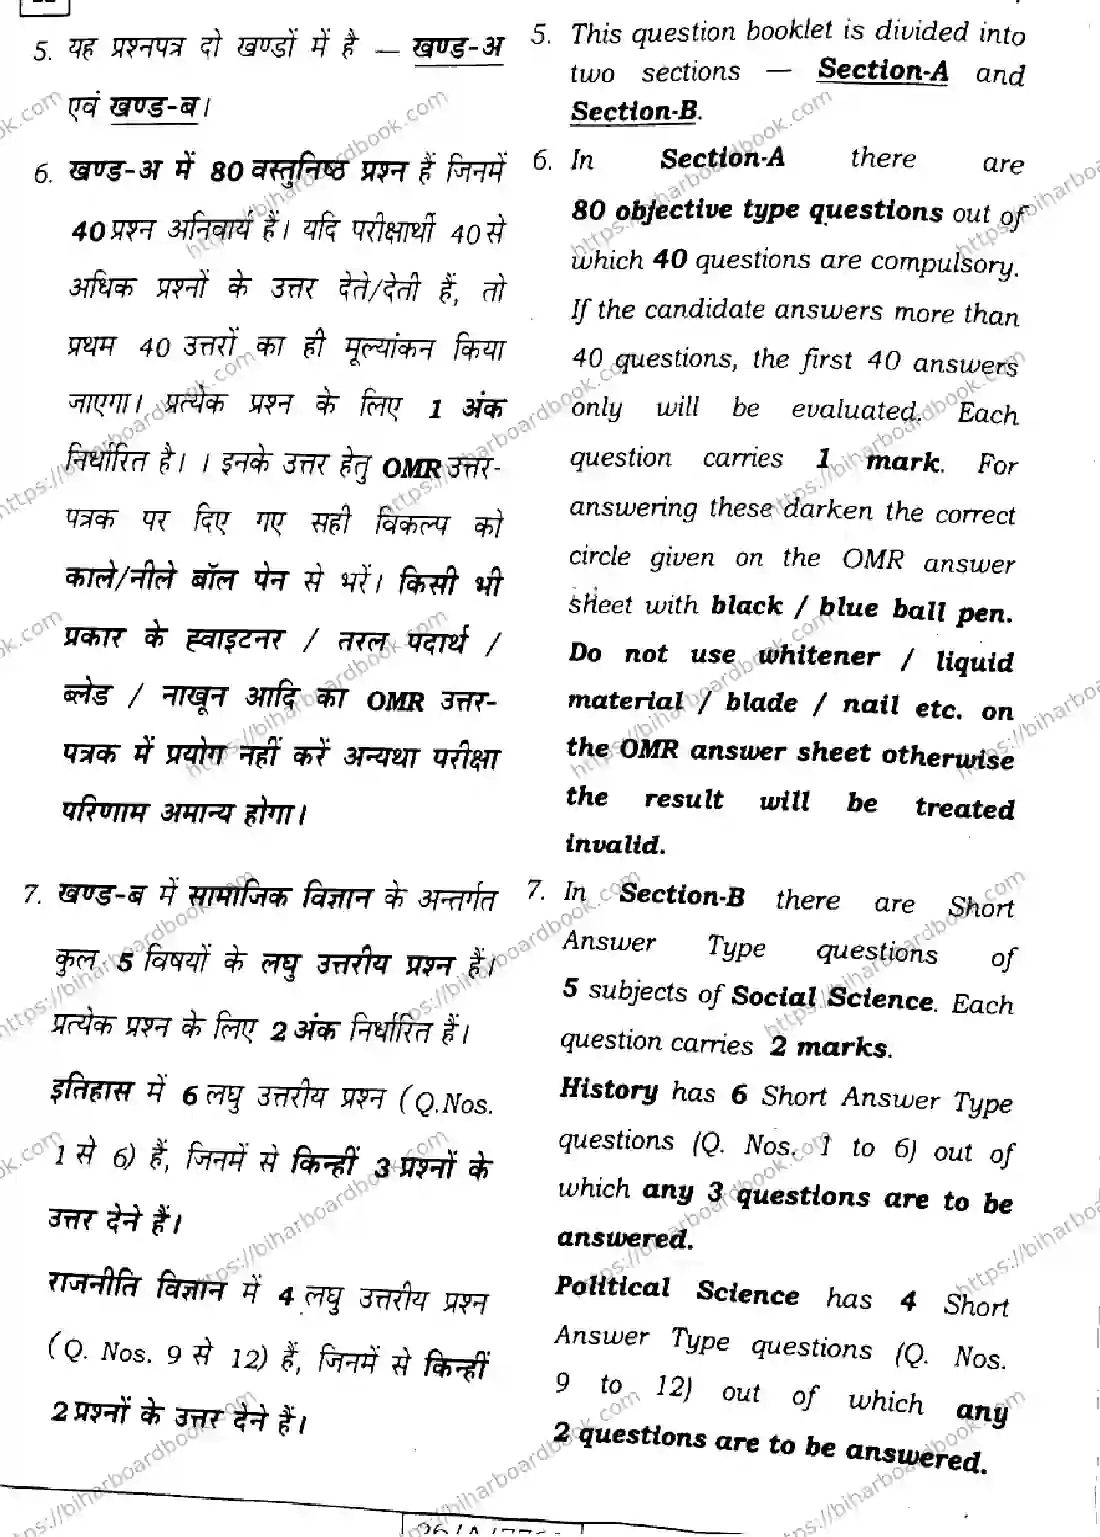 5. यह प्रश्नपत्र दो खण्डों में है — खण्ड-अ
एवं खण्ड-ब।
6. खण्ड-अ में 80 वस्तुनिष्ठ प्रश्न हैं जिनमें
40 प्रश्न अनिवार्य हैं। यदि परीक्षार्थी 40 से
अधिक प्रश्नों के उत्तर देते/देती हैं, तो
प्रथम 40 उत्तरों का ही मूल्यांकन किया
जाएगा। प्रत्येक प्रश्न के लिए 1 अंक
निर्धारित है। । इनके उत्तर हेतु OMR उत्तर-
पत्रक पर दिए गए सही विकल्प को
काले/नीले बॉल पेन से भरें। किसी भी
प्रकार के ह्वाइटनर / तरल पदार्थ /
ब्लेड / नाखून आदि का OMR उत्तर-
पत्रक में प्रयोग नहीं करें अन्यथा परीक्षा
परिणाम अमान्य होगा।
7. खण्ड-ब में सामाजिक विज्ञान के अन्तर्गत
कुल 5 विषयों के लघु उत्तरीय प्रश्न हैं।
प्रत्येक प्रश्न के लिए 2 अंक निर्धारित हैं।
इतिहास में 6 लघु उत्तरीय प्रश्न (Q.Nos.
1 से 6) हैं, जिनमें से किन्हीं 3 प्रश्नों के
उत्तर देने हैं।
राजनीति विज्ञान में 4 लघु उत्तरीय प्रश्न
(Q. Nos. 9 से 12) हैं, जिनमें से किन्हीं
2 प्रश्नों के उत्तर देने हैं।
5. This question booklet is divided into
two sections — Section-A and
Section-B.
6. In Section-A there are
80 objective type questions out of
which 40 questions are compulsory.
If the candidate answers more than
40 questions, the first 40 answers
only will be evaluated. Each
question carries 1 mark. For
answering these darken the correct
circle given on the OMR answer
sheet with black / blue ball pen.
Do not use whitener / liquid
material / blade / nail etc. on
the OMR answer sheet otherwise
the result will be treated
invalid.
7. In Section-B there are Short
Answer Type questions of
5 subjects of Social Science. Each
question carries 2 marks.
History has 6 Short Answer Type
questions (Q. Nos. 1 to 6) out of
which any 3 questions are to be
answered.
Political Science has 4 Short
Answer Type questions (Q. Nos.
9 to 12) out of which any
2 questions are to be answered.
https://biharboardbook.com